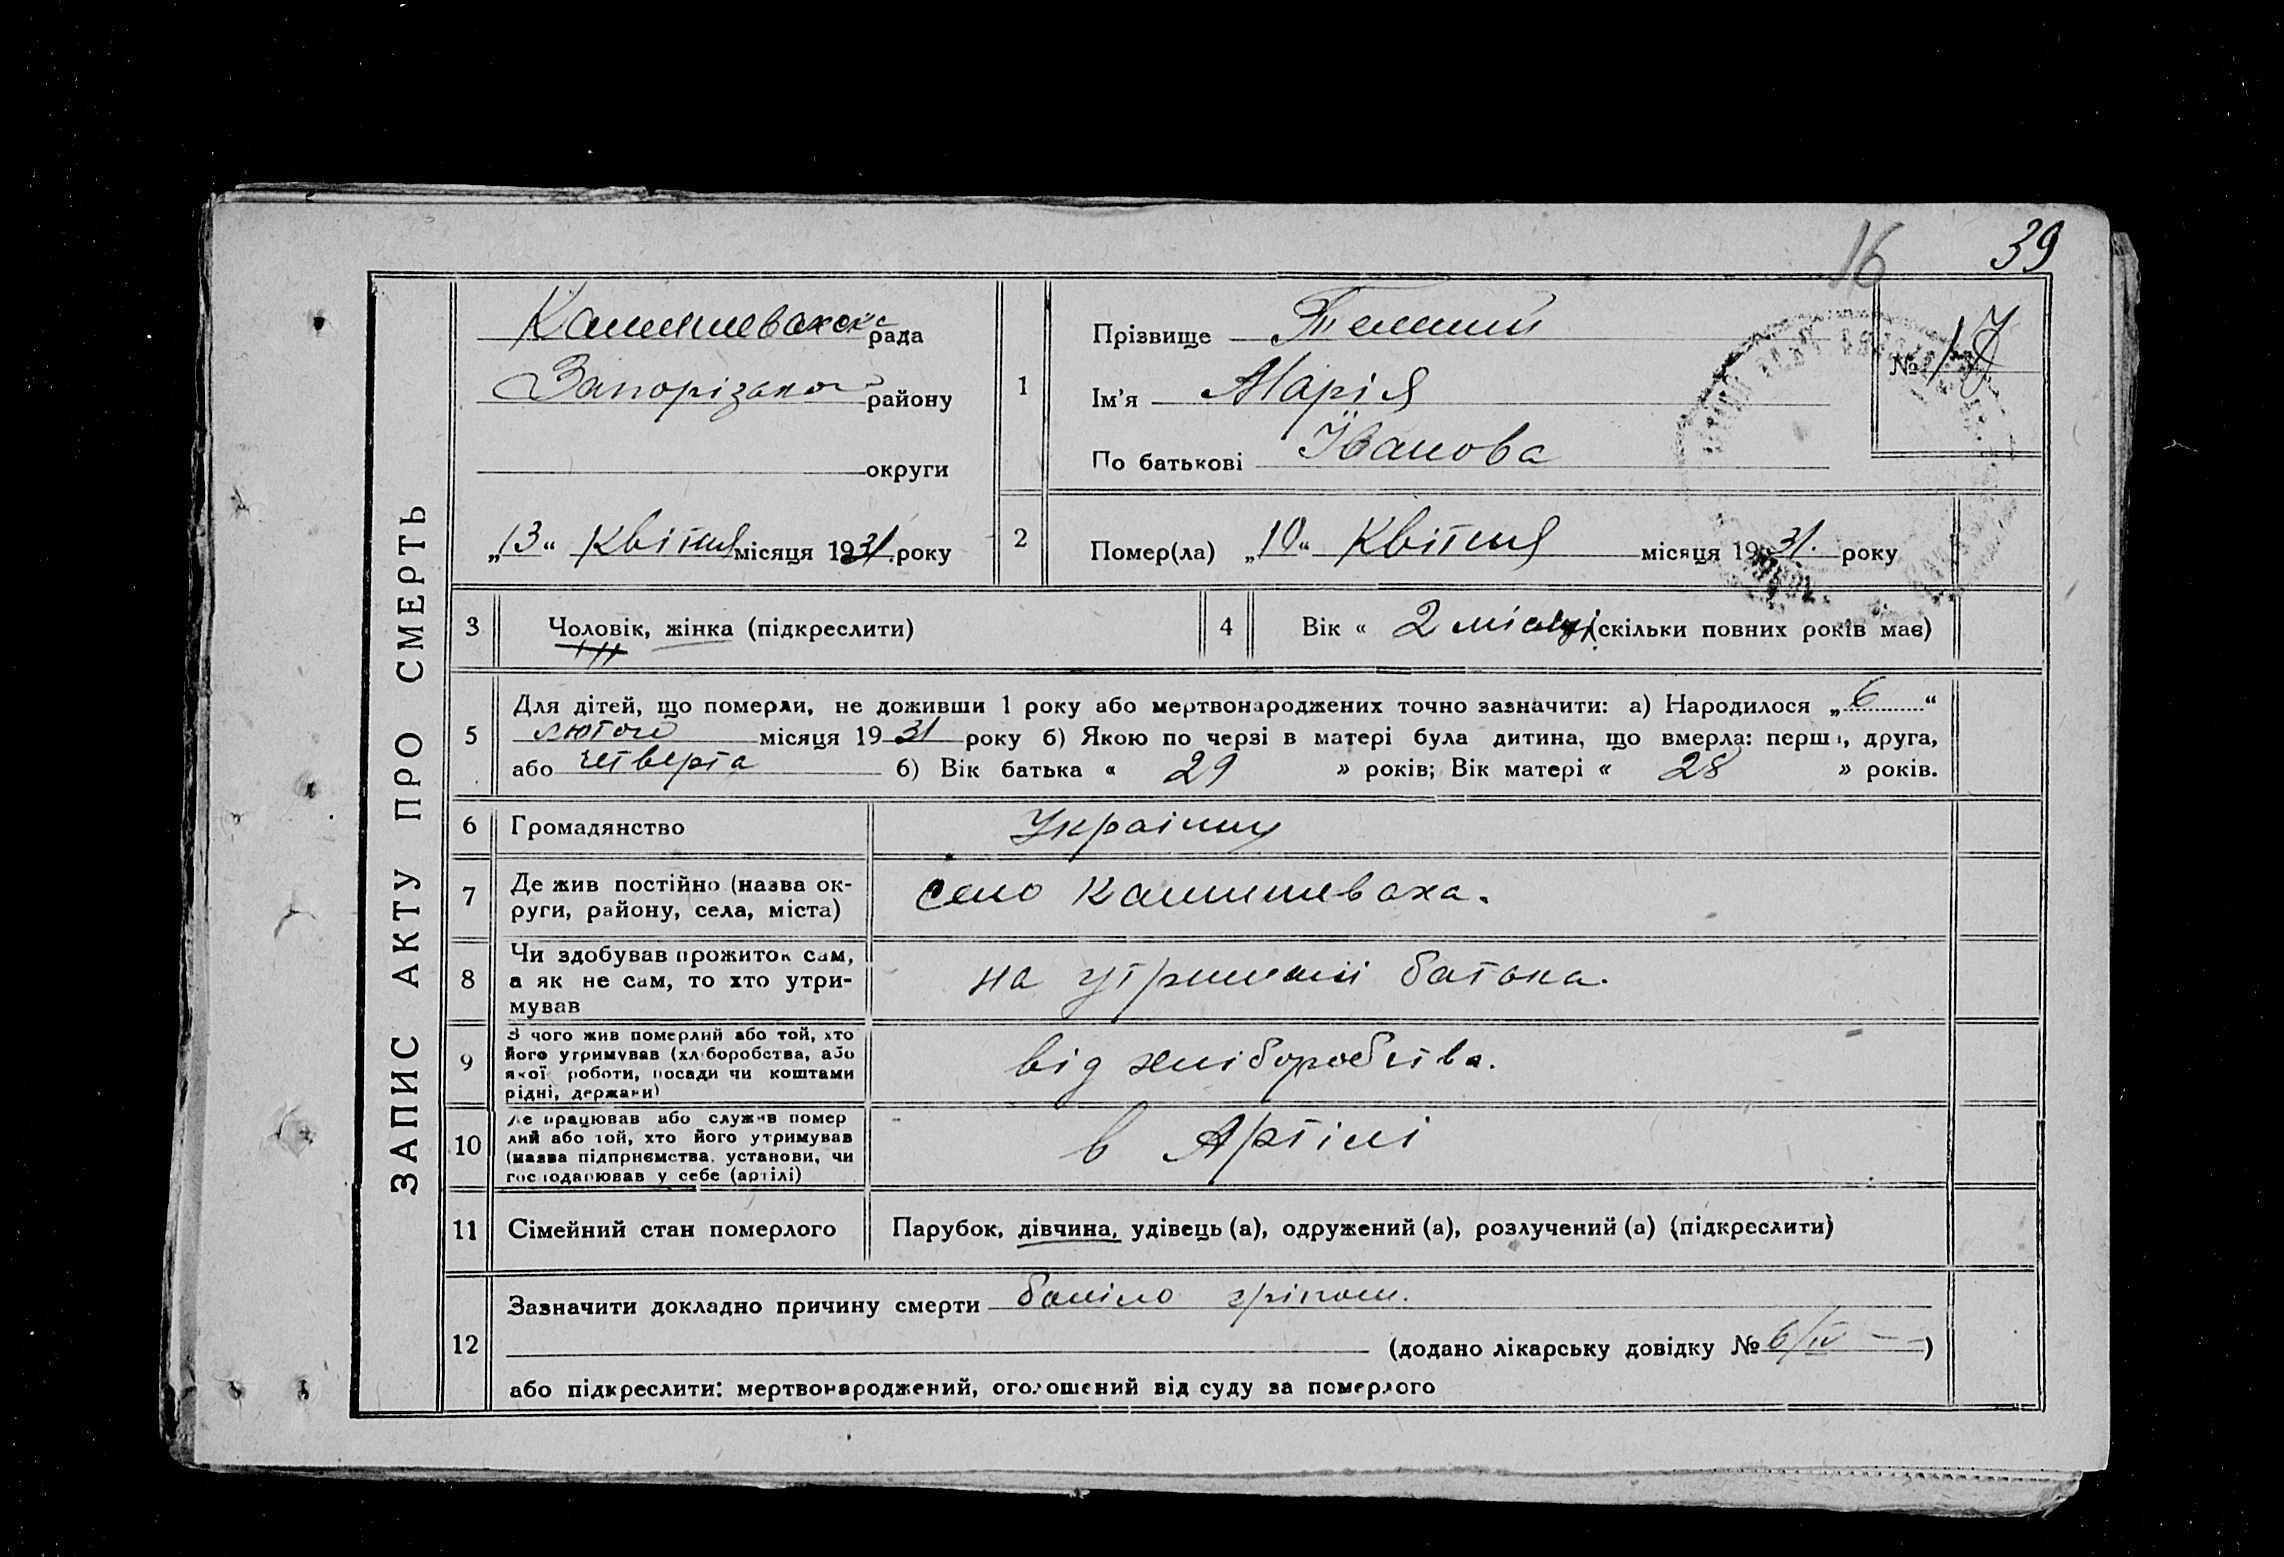 16 39
ЗАПИС АКТУ ПРО СМЕРТЬ
Комишевахска рада
Запорізького району
округи
„13“ Квітня місяця 1931. року
1
Прізвище
Ім'я Марія
По батькові Іванова
№ 17
2
Помер(ла) „10“ Квітня місяця 1931. року
3 Чоловік, жінка (підкреслити)
4 Вік « 2 місяці (скільки повних років має)
5
Для дітей, що померли, не доживши 1 року або мертвонароджених точно зазначити: а) Народилося „6“
лютого місяця 1931 року б) Якою по черзі в матері була дитина, що вмерла: перша, друга,
або четверта б) Вік батька « 29 » років; Вік матері « 28 » років.
6 Громадянство Україну
7 Де жив постійно (назва ок-
руги, району, села, міста)
село Камишеваха.
8 Чи здобував прожиток сам,
а як не сам, то хто утри-
мував
на утриманні батька.
9 З чого жив померлий або той, хто
його утримував (хліборобства, або
якої роботи, посади чи коштами
рідні, держави)
від хліборобства.
10 Де працював або служив помер
лий або той, хто його утримував
(назва підприємства, установи, чи
господарював у себе (артілі)
в Артілі
11 Сімейний стан померлого Парубок, дівчина, удівець (а), одружений (а), розлучений (а) (підкреслити)
12
Зазначити докладно причину смерти боліло гріпом.
(додано лікарську довідку № 6/IV – –)
або підкреслити: мертвонароджений, оголошений від суду за померлого